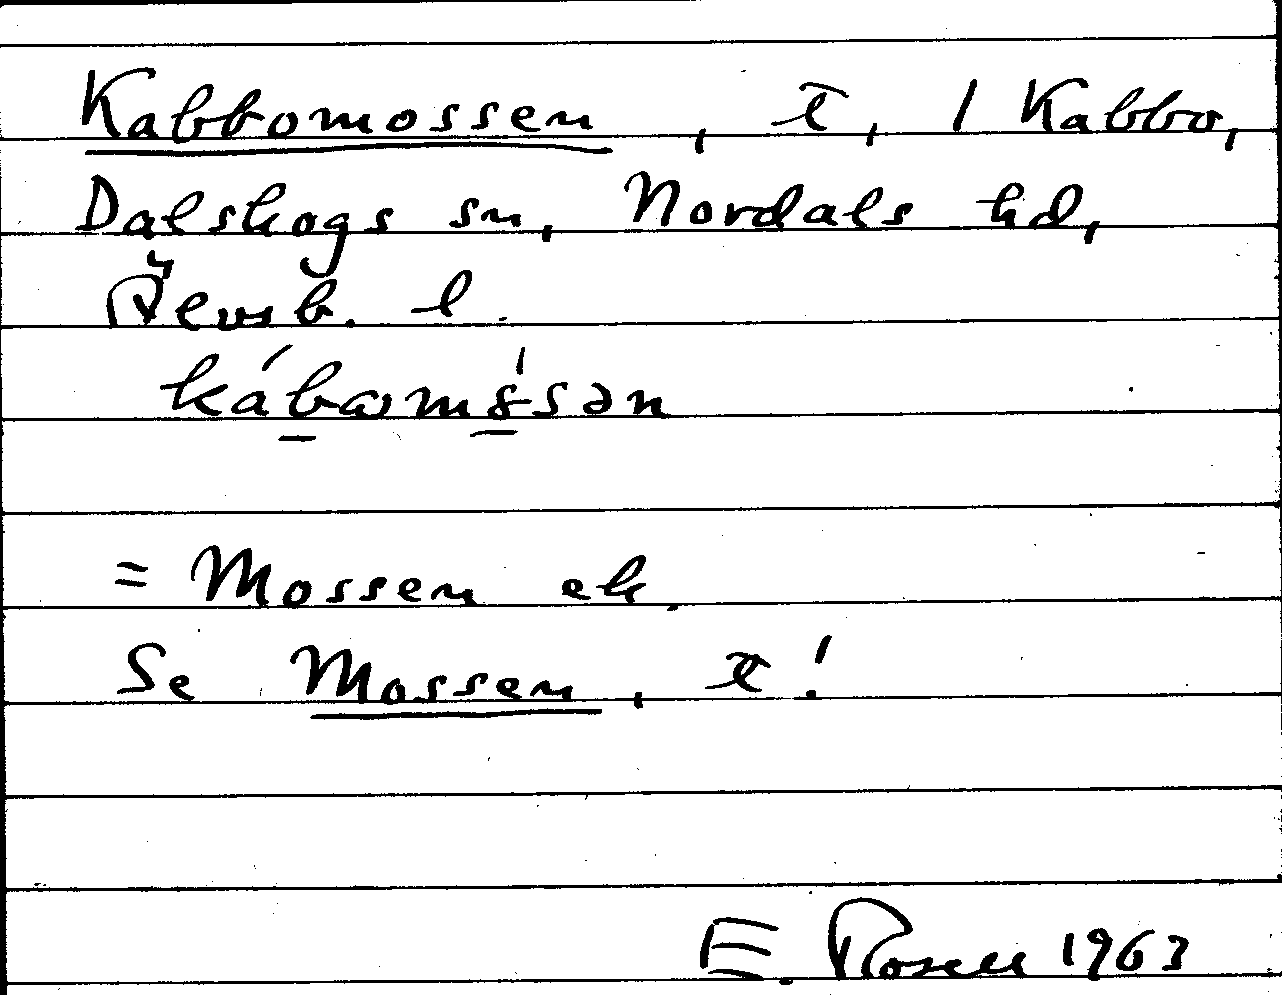 Kabbomossen, t, 1 Kabbo,
Dalskogs sn, Nordals hd,
Älvsb. l.
kábωmǒ̀sən
= Mossen ek.
Se Mossen, t!
E. Rosell 1963